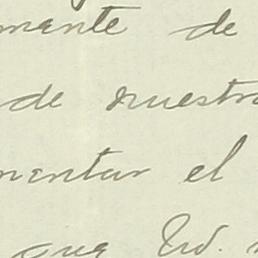 mente de
de nuestra
mentar el
que Ud.